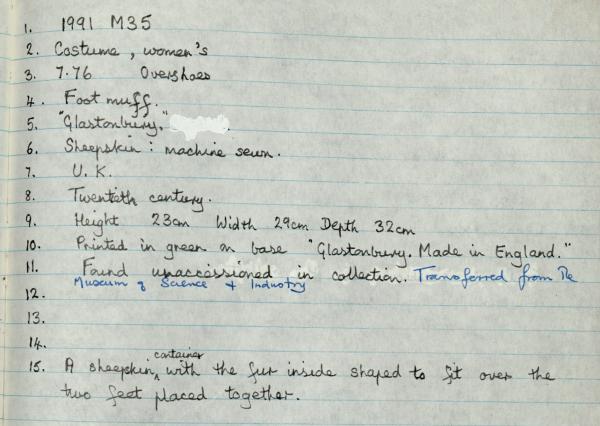 1. 1991 M35
2. Costume, women's
3. 7.76 Overshoes
4. Foot muff.
5. "Glastonbury."
6. Sheepskin: machine sewn.
7. U.K.
8. Twentieth century.
9. Height 23cm Width 29cm Depth 32cm
10. Printed in green on base "Glastonbury. Made in England."
11. Found unaccessioned in collection. Transferred from the
Museum of Science & Industry
12.
13.
14.
container
15. A sheepskin ^ with the fur inside shaped to fit over the
two feet placed together.